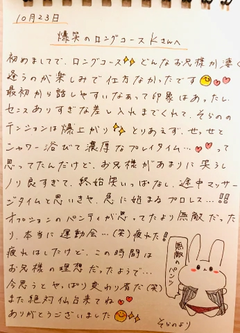 10月23日
爆笑のロングコースKさんへ
初めましてで、ロングコース どんなお兄様が凄く
違うのが楽しみで仕方なかったです
最初から話しやすいなぁって印象はあったし、
センスありすぎな差し入れまでくれて、そらの
テンションは爆上がり とりあえず、せっせと
シャワー浴びて濃厚なプレイタイム… って
思ってたんだけど、お兄様があまりに笑うし
ノリ良すぎて、終始笑いっぱなし、途中マッサー
ジタイムと思いきや、急に始まるプロレス…!!
オプションのパンティが思ってたより無敵だった
り、本当に運動会…(笑)疲れた!!
疲れはしたけど、この時間は
お兄様の理想だったようで…
今思うと、やっぱり変わり者だ(笑)
また絶対仙台来てね
ありがとうございました
そらのより
無敵のパンツ